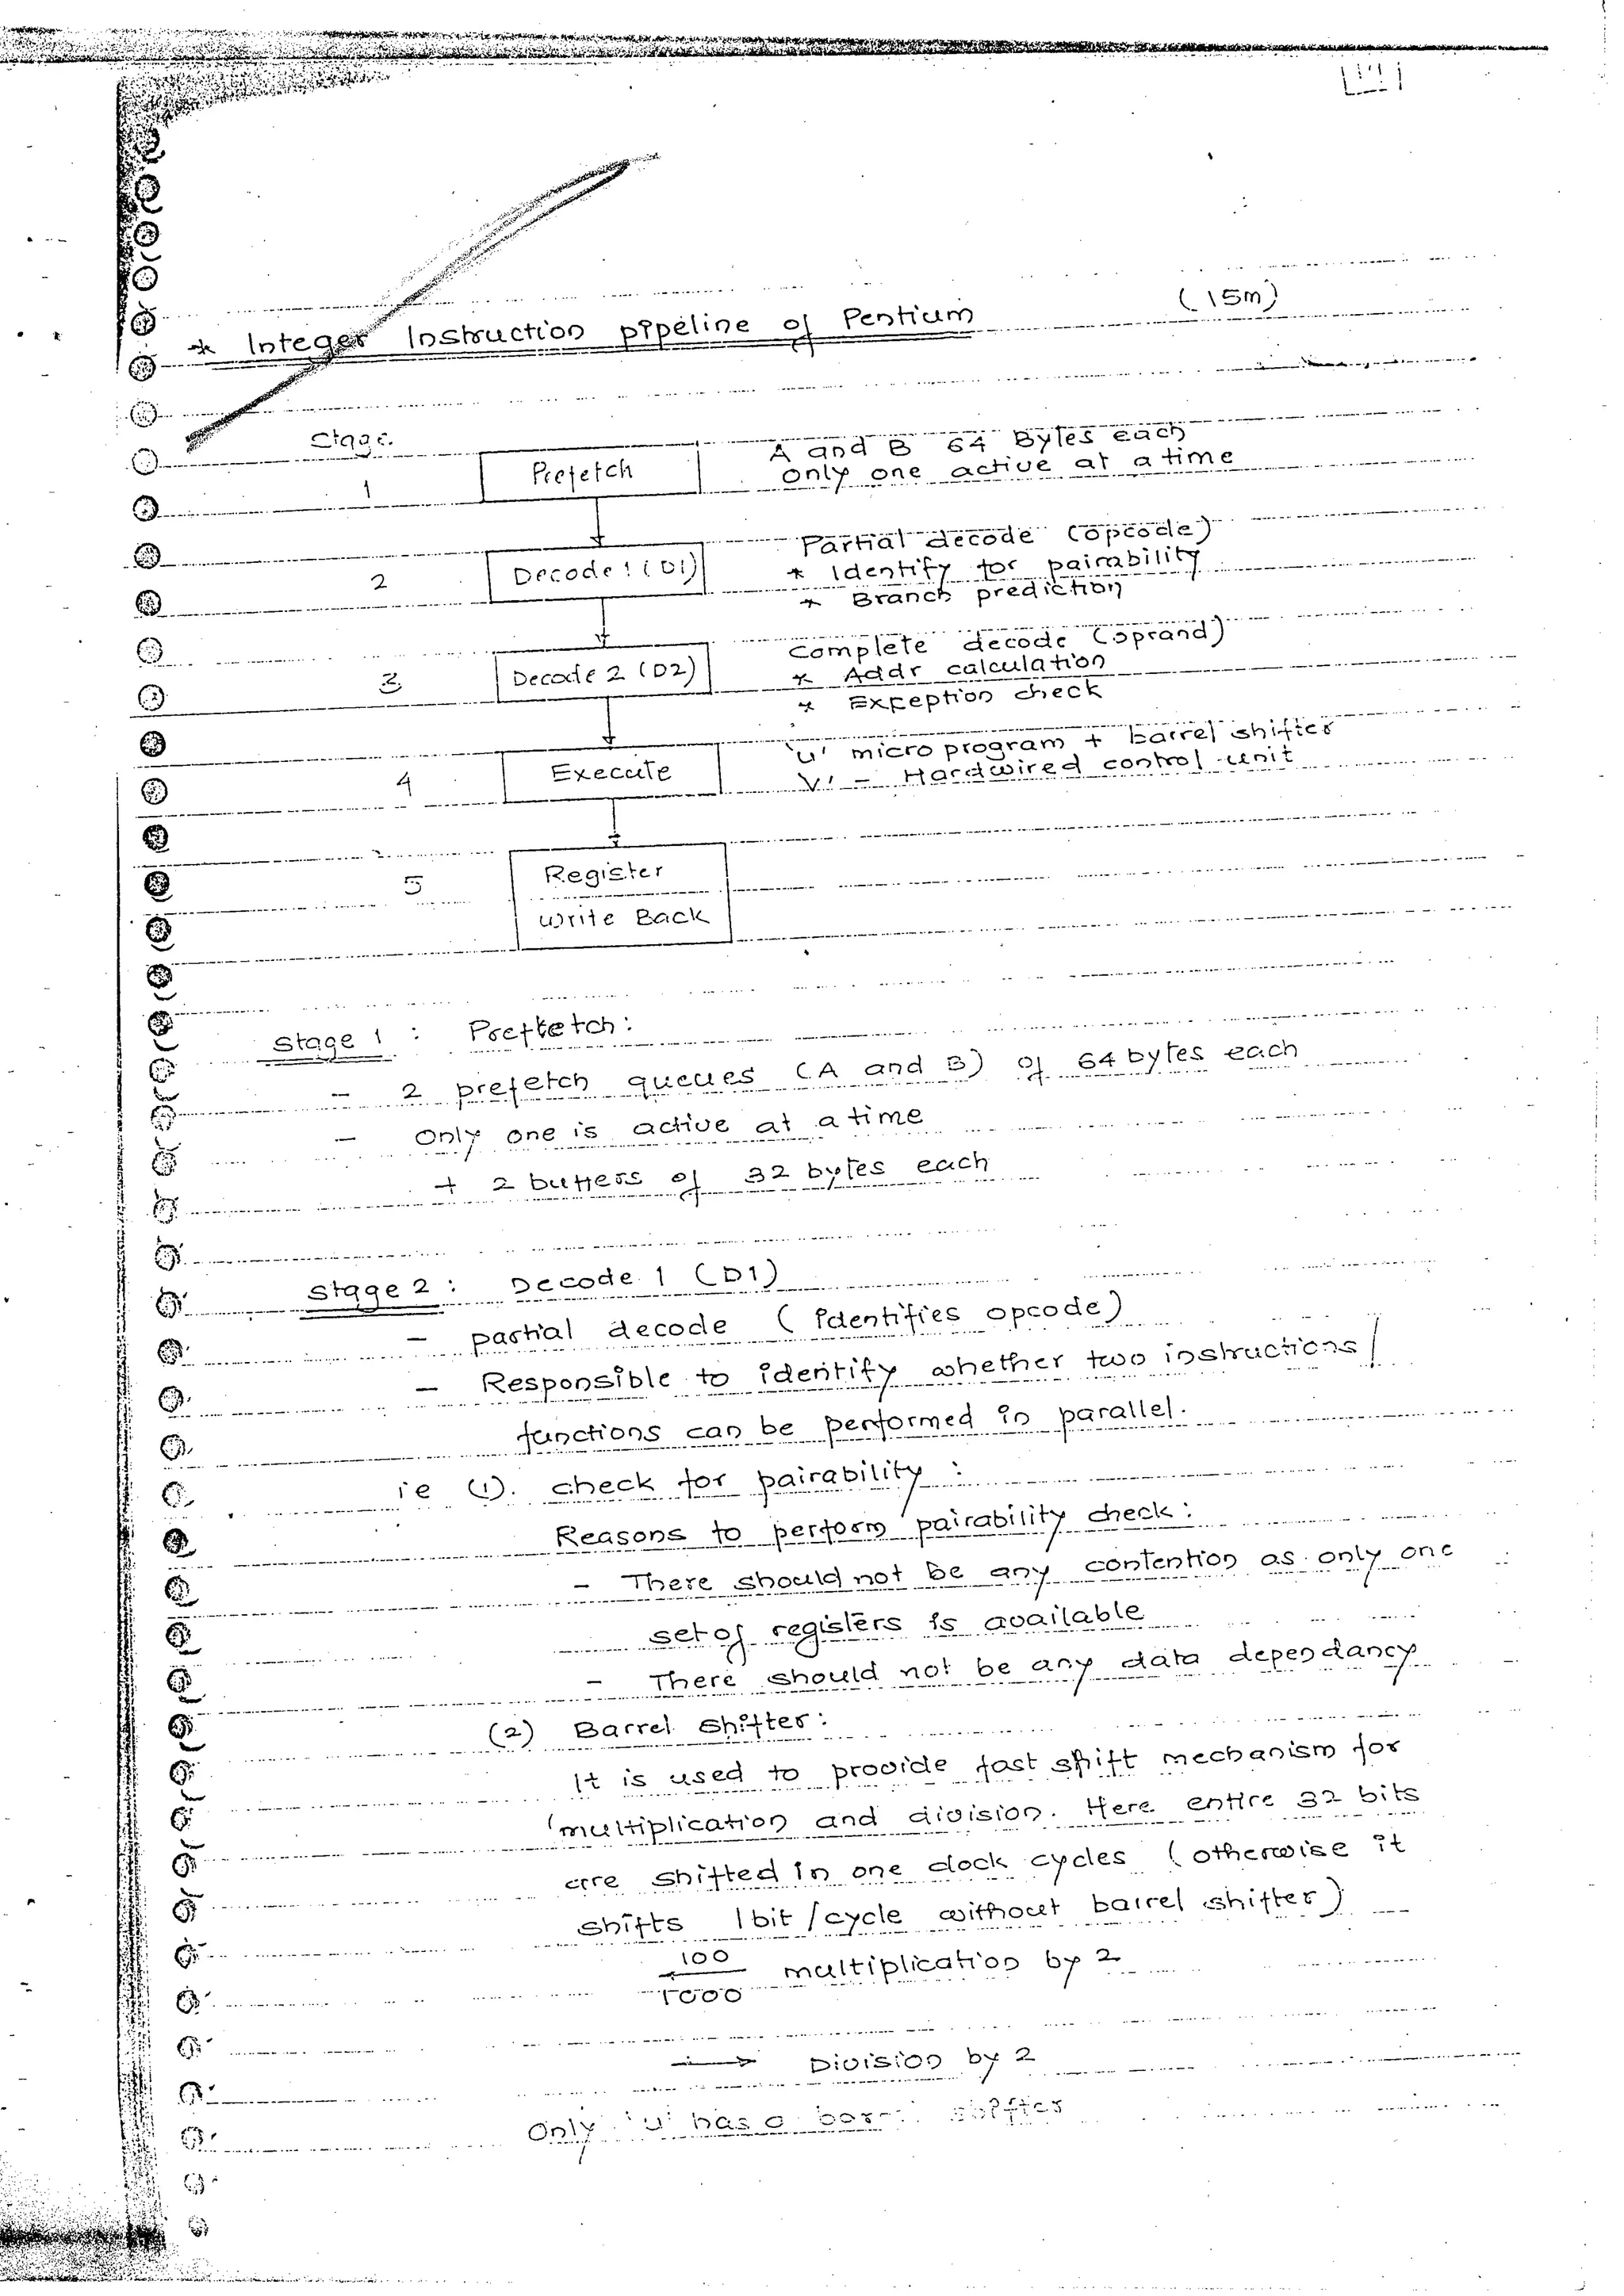 * Integer Instruction pipeline of Pentium (15m)
Stage
1 Prefetch A and B 64 Bytes each
only one active at a time
2 Decode 1 (D1) Partial decode (opcode)
* Identify for pairability
* Branch prediction
3 Decode 2 (D2) Complete decode (oprand)
* Addr calculation
* Exception check
4 Execute 'u' micro program + barrel shifter
V' - Hardwired control unit
5 Register
Write Back
Stage 1 : Prefetch :
- 2 prefetch queues (A and B) of 64 bytes each
- Only one is active at a time
+ 2 buffers of 32 bytes each
Stage 2 : Decode 1 (D1)
- partial decode (identifies opcode)
- Responsible to identify whether two instructions/
functions can be performed in parallel.
ie (1). check for pairability :
Reasons to perform pairability check :
- There should not be any contention as only one
set of registers is available
- There should not be any data dependancy
(2) Barrel shifter :
It is used to provide fast shift mechanism for
multiplication and division. Here entire 32 bits
are shifted in one clock cycles (otherwise it
shifts 1 bit / cycle without barrel shifter)
100
← multiplication by 2
1000
→ Division by 2
Only 'u' has a barrel shifter